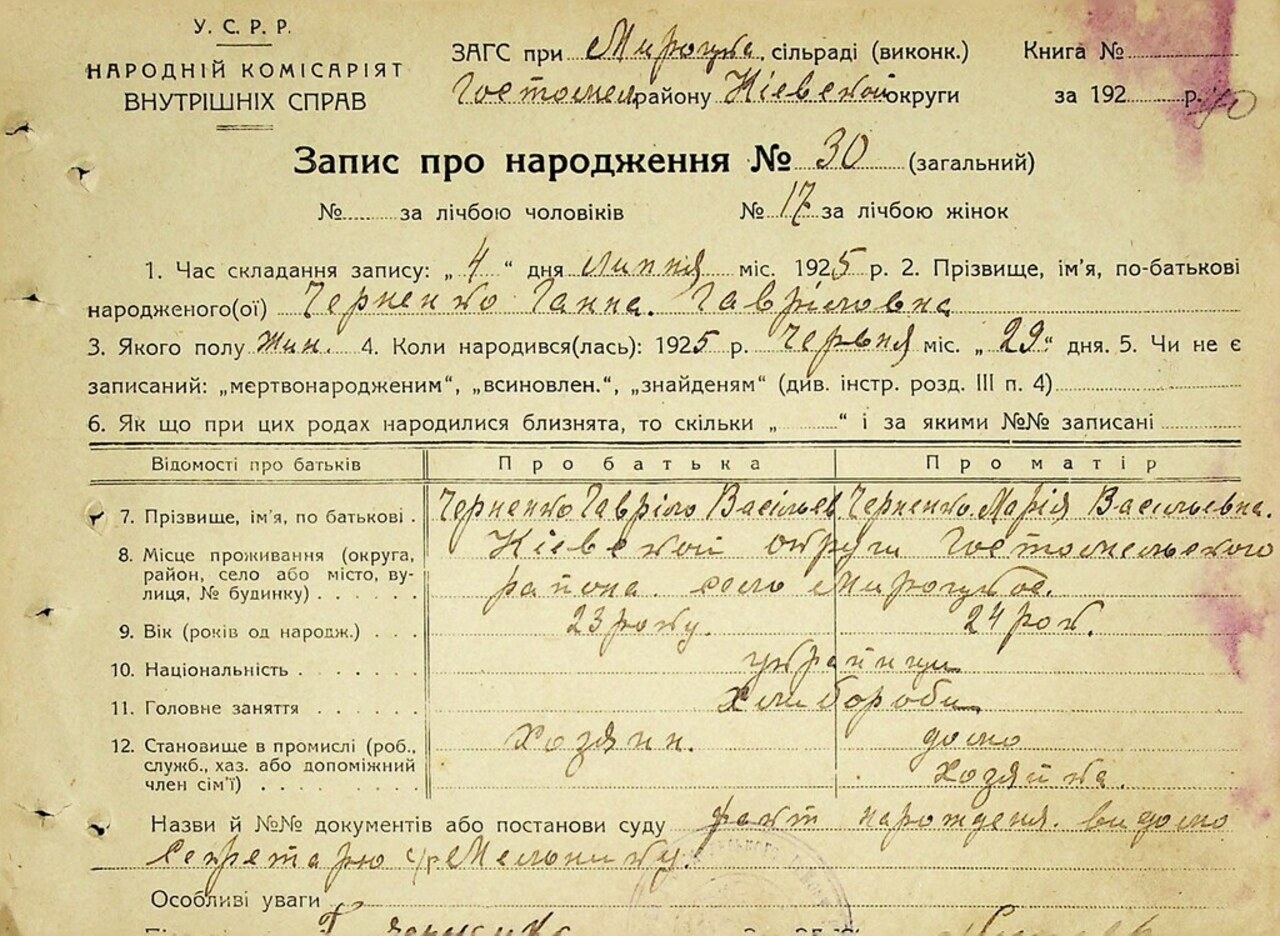 У. С. Р. Р.
НАРОДНІЙ КОМІСАРІЯТ
ВНУТРІШНІХ СПРАВ
ЗАГС при Мироцька сільраді (виконк.)
Гостомел району Кіевской округи
Книга №
за 192 р.
Запис про народження № 30 (загальний)
№ за лічбою чоловіків № 17 за лічбою жінок
1. Час складання запису: „ 4 “ дня липня міс. 1925 р. 2. Прізвище, ім'я, по-батькові
народженого(ої) Черненко Ганна Гавріловна
3. Якого полу жин. 4. Коли народився(лась): 1925 р. Червня міс. „ 29 “ дня. 5. Чи не є
записаний: „мертвонародженим“, „всиновлен.“, „знайденям“ (див. інстр. розд. III п. 4)
6. Як що при цих родах народилися близнята, то скільки „ “ і за якими №№ записані
Відомості про батьків Про батька Про матір
7. Прізвище, ім'я, по батькові . Черненко Гавріло Васільев Черненко Марія Васільевна.
8. Місце проживання (округа, Кіевской округи Гостомельского
район, село або місто, ву-
лиця, № будинку) района село Мироцкое.
9. Вік (років од народж.) 23 року. 24 рок.
10. Національність українци
11. Головне заняття Хлибороби
12. Становище в промислі (роб., Хозяин. домо
служб., хаз. або допоміжний
член сім'ї) хозяйка.
Назви й №№ документів або постанови суду факт народження видомо
Секретарю с/р Мельнику.
Особливі уваги
Г Черненко